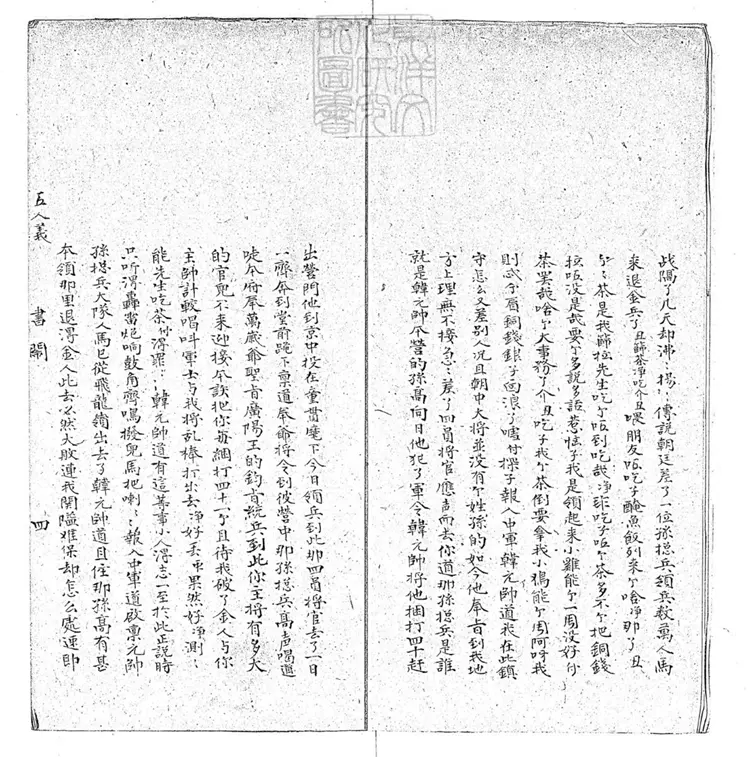 戰隔了几天却沸〻揚〻傳說朝廷差了一位孫搃兵領兵数萬人馬
来退金兵了丑篩茶净吃介丑喂朋友𠲎吃子醃魚飯列来个啥净那了丑
个〻茶是我篩拉先生吃个𠲎到吃哉净非吃子𠲎个茶多不个把銅錢
拉𠲎没是哉要个多説多話惹怪子我是領起来小雞能个一周没好介
茶罢哉啥个大事務了介丑吃子我个茶倒要拿我小鷄能个周阿呀我
則忒个眉銅錢銀子面浪了嘘付探子報入中軍韓元帥道我在此鎮
守怎么又差別人况且朝中大将並没有个姓孫的如今他奉㫖到我地
方上理無不接急〻差了四員將官應声而去你道那孫搃兵是誰
就是韓元帥麾營的孫髙向日他犯了軍令韓元帥將他捆打四十赶
出營門他到京中投在童貫麾下今日領兵到此那四員將官去了一日
一齊奔到堂前跪下禀道奉爺將令到彼營中那孫搃兵髙声喝道
唗本府奉萬歳爺聖㫖廣陽王的鈞㫖統兵到此你主將有多大
的官兒不来迎接本該把你每綑打四十个且待我破了金人与你
主帥計較喝叫軍士与我将乱棒打出去净好丢丑果然好净測〻
能先生吃茶介得罪〻韓元帥道有這等事小人得志一至扵此正説時
只听得轟雷炮响鼓角齊鳴撥兒馬把喇〻報入中軍道啟禀元帥
孫搃兵大隊人馬已從飛龍嶺出去了韓元帥道且住那孫髙有甚
本領那里退得金人此去必然大敗連我関隘难保却怎么處速即
五人義
書閙
四